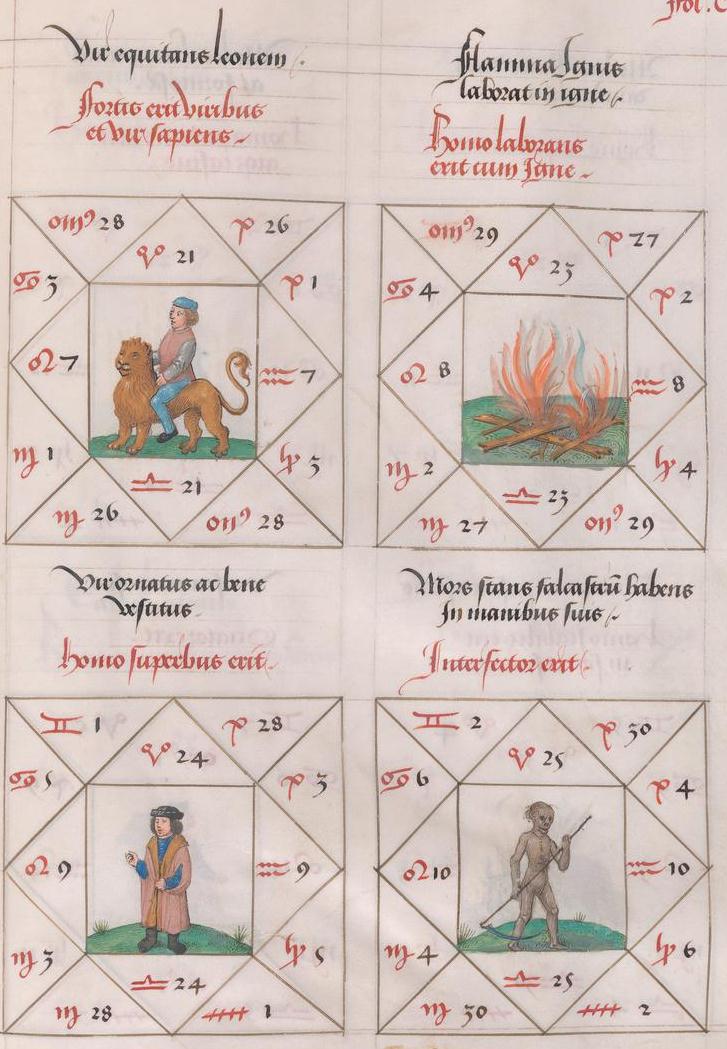 fol. C
Vir equitans leonem
Fortis erit viribus
et vir sapiens
♉ 28
♈ 21
♓ 26
♋ 3
♓ 1
♌ 7
♒ 7
♍ 1
♑ 3
♎ 21
♍ 26
28
Flamma Ignis
laborat in igne
Homo laborans
erit cum Igne
29
♈ 23
♓ 27
♋ 4
♓ 2
♌ 8
♒ 8
♍ 2
♑ 4
♎ 23
♍ 27
29
Vir ornatus ac bene
vestitus
homo superbus erit
♊ 1
♈ 24
♓ 28
♋ 5
♓ 3
♌ 9
♒ 9
♍ 3
♑ 5
♎ 24
♍ 28
1
Mors stans falcastrū habens
In manibus suis
Interfector erit
♊ 2
♈ 25
♓ 30
♋ 6
♓ 4
♌ 10
♒ 10
♍ 4
♑ 6
♎ 25
♍ 30
2